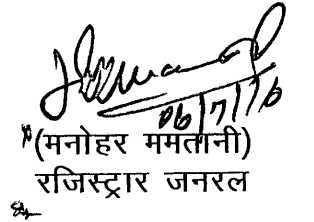 06/7/16
(मनोहर ममतानी)
रजिस्ट्रार जनरल